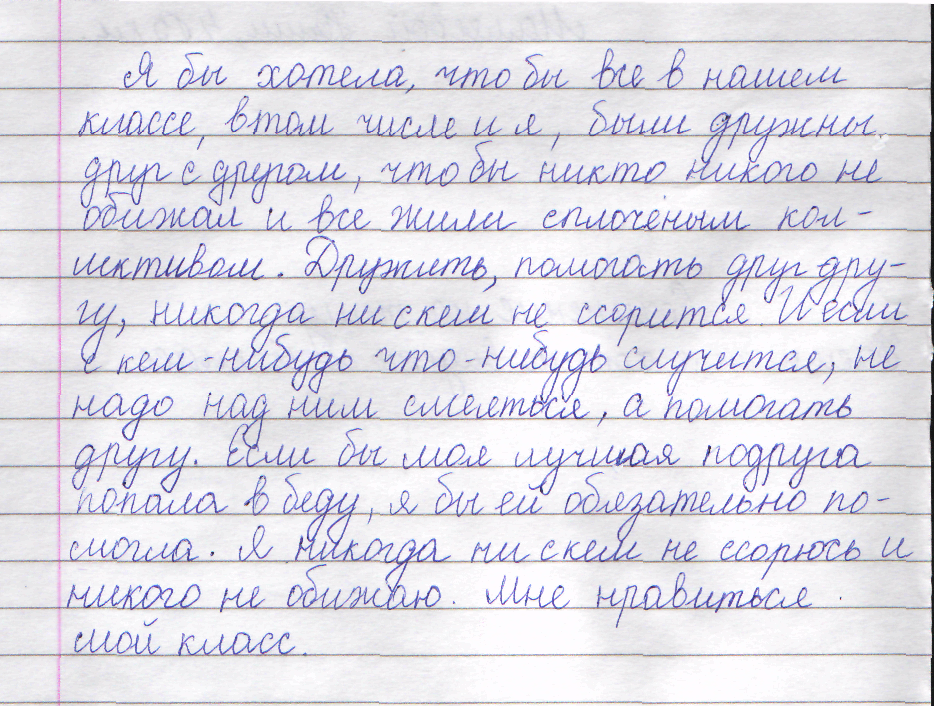 Я бы хотела, что бы все в нашем
классе, в том числе и я, были дружны
друг с другом, что бы никто никого не
обижал и все жили сплоченым кол-
лективом. Дружить, помогать друг дру-
гу, никогда ни с кем не ссорится. И если
с кем-нибудь что-нибудь случится, не
надо над ним смеяться, а помогать
другу. Если бы моя лучшая подруга
попала в беду, я бы ей обязательно по-
могла. Я никогда ни с кем не ссорюсь и
никого не обижаю. Мне нравиться
мой класс.